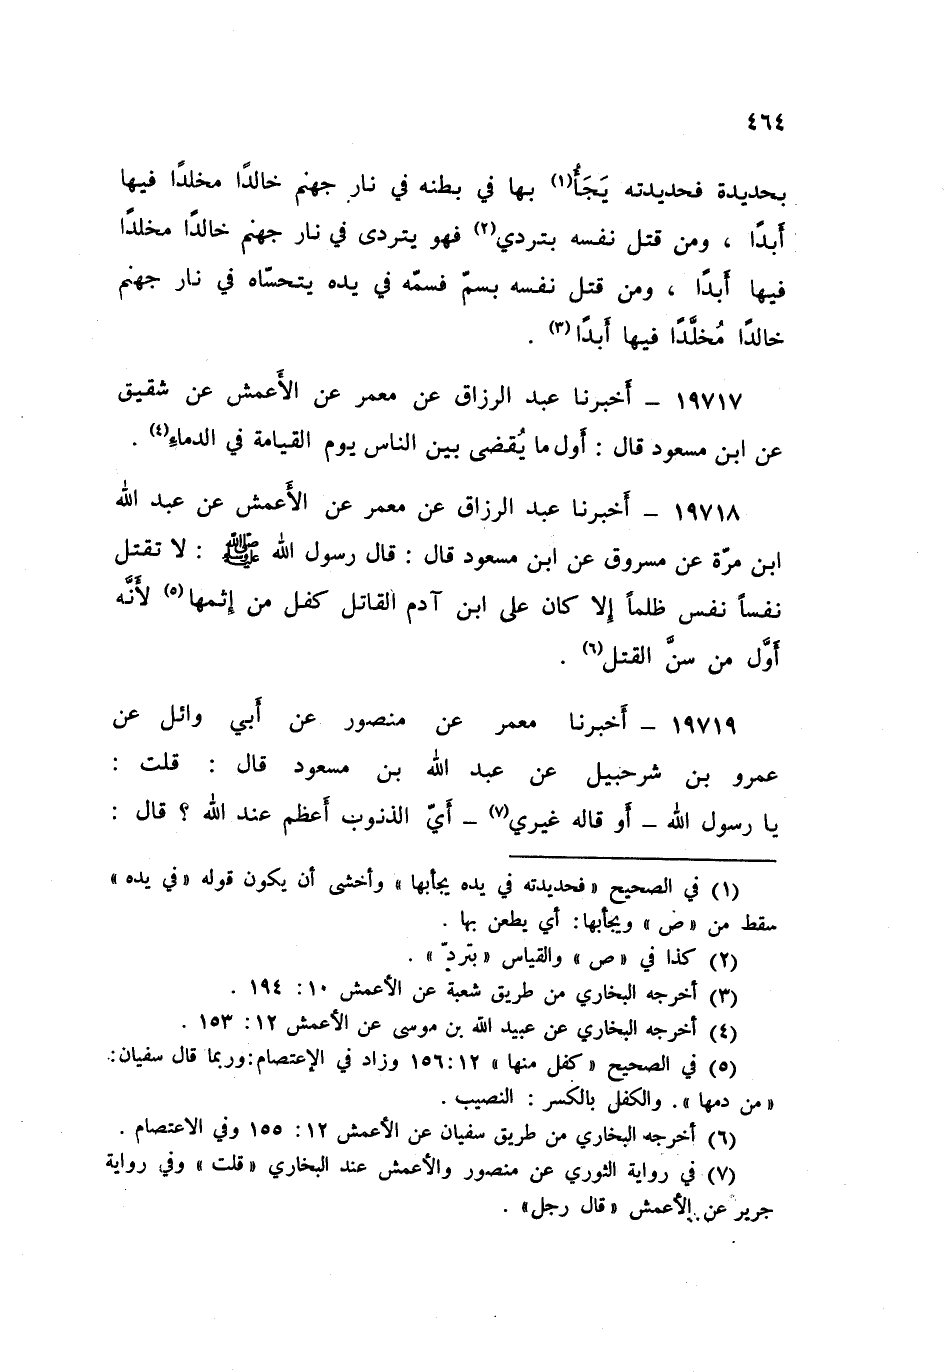 ٤٦٤
بحديدة فحديدته يَجَأُ(١) بها في بطنه في نار جهنم خالدًا مخلدًا فيها
أَبدًا ، ومن قتل نفسه بتردي(٢) فهو يتردى في نار جهنم خالدًا مخلدًا
فيها أَبدًا ، ومن قتل نفسه بسمّ فسمّه في يده يتحسّاه في نار جهنم
خالدًا مُخلَّدًا فيها أَبدًا(٣) .
١٩٧١٧ – أَخبرنا عبد الرزاق عن معمر عن الأَعمش عن شقيق
عن ابن مسعود قال : أَول ما يُقضى بين الناس يوم القيامة في الدماءِ(٤) .
١٩٧١٨ – أَخبرنا عبد الرزاق عن معمر عن الأَعمش عن عبد الله
ابن مرّة عن مسروق عن ابن مسعود قال : قال رسول الله ﷺ : لا تقتل
نفساً نفس ظلماً إلا كان على ابن آدم القاتل كفل من إثمها(٥) لأَنَّه
أَوَّل من سنَّ القتل(٦) .
١٩٧١٩ – أَخبرنا معمر عن منصور عن أَبي وائل عن
عمرو بن شرحبيل عن عبد الله بن مسعود قال : قلت :
يا رسول الله – أَو قاله غيري(٧) – أَيّ الذنوب أَعظم عند الله ؟ قال :
(١) في الصحيح « فحديدته في يده يجأبها » وأخشى أن يكون قوله « في يده »
سقط من « ص » ويجأبها: أي يطعن بها .
(٢) كذا في « ص » والقياس « بتردٍّ » .
(٣) أخرجه البخاري من طريق شعبة عن الأعمش ١٠: ١٩٤ .
(٤) أخرجه البخاري عن عبيد الله بن موسى عن الأعمش ١٢: ١٥٣ .
(٥) في الصحيح « كفل منها » ١٥٦:١٢ وزاد في الإعتصام:وربما قال سفيان:
« من دمها ». والكفل بالكسر : النصيب .
(٦) أخرجه البخاري من طريق سفيان عن الأعمش ١٢: ١٥٥ وفي الاعتصام .
(٧) في رواية الثوري عن منصور والأعمش عند البخاري « قلت » وفي رواية
جرير عن الأعمش « قال رجل» .